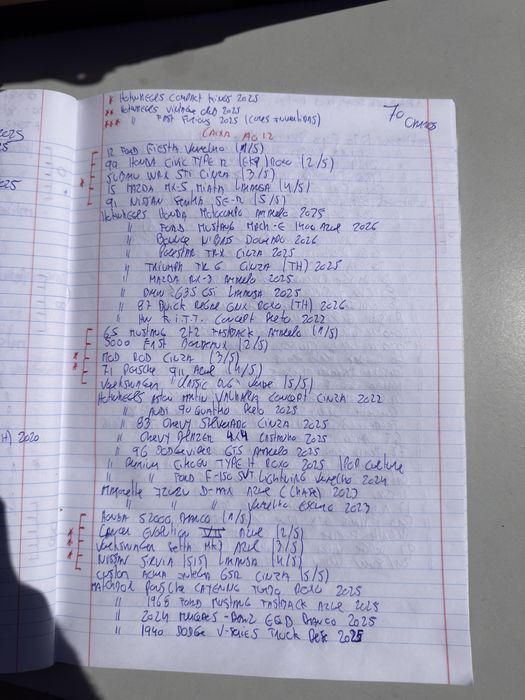 2025
2025
H) 2020
* HOTWHEELS COMPACT KINGS 2025
** HOTWHEELS VINTAGE CLUB 2025
*** " FAST FURIOUS 2025 (CORES INVERTIDAS)
70 CARROS
CAIXA AG12
12 FORD FIESTA VERMELHO (1/5)
99 HONDA CIVIC TYPE R (EK9) ROXO (2/5)
SUBARU WRX STI CINZA (3/5)
* 15 MAZDA MX-5 MIATA LARANJA (4/5)
91 NISSAN SENTRA SE-R (5/5)
HOTWHEELS HONDA MOTOCOMPO AMARELO 2025
" FORD MUSTANG MACH-E 1400 AZUL 2026
" BOUNCE DOURADO 2026
" POLESTAR CINZA 2025
" TRIUMPH TR6 CINZA (TH) 2025
" MAZDA RX-3 AMARELO 2025
" BMW 635 CSI LARANJA 2025
" 87 BUICK REGAL GNX ROXO (TH) 2026
" HW R.I.T.T. CONCEPT PRETO 2022
65 MUSTANG 2+2 FASTBACK AMARELO (1/5)
3000 FAST (2/5)
* MOD ROD CINZA (3/5)
* 71 PORSCHE 911 AZUL (4/5)
VOLKSWAGEN CLASSIC BUG VERDE (5/5)
HOTWHEELS ASTON MARTIN VALHALLA CONCEPT CINZA 2022
" AUDI 90 QUATTRO PRETO 2025
" 83 CHEVY SILVERADO CINZA 2025
" CHEVY BLAZER 4X4 CASTANHO 2025
" 96 DODGE VIPER GTS AMARELO 2025
" PREMIUM CITROEN TYPE H ROXO 2025 (POP CULTURE
" " FORD F-150 SVT LIGHTNING VERMELHO 2024
MAJORETTE ISUZU D-MAX AZUL (CHASE) 2023
" " " VERMELHO ESCURO 2023
HONDA S2000 BRANCO (1/5)
* LANCER EVOLUTION VII AZUL (2/5)
* VOLKSWAGEN JETTA MK3 AZUL (3/5)
* NISSAN SILVIA (S15) LARANJA (4/5)
CUSTOM ACURA INTEGRA GSR CINZA (5/5)
MATCHBOX PORSCHE CAYENNE TURBO ROXO 2025
" 1965 FORD MUSTANG FASTBACK AZUL 2025
" 2024 MERCEDES-BENZ EQD BRANCO 2025
" 1940 DODGE V-SERIES TRUCK PRETO 2025